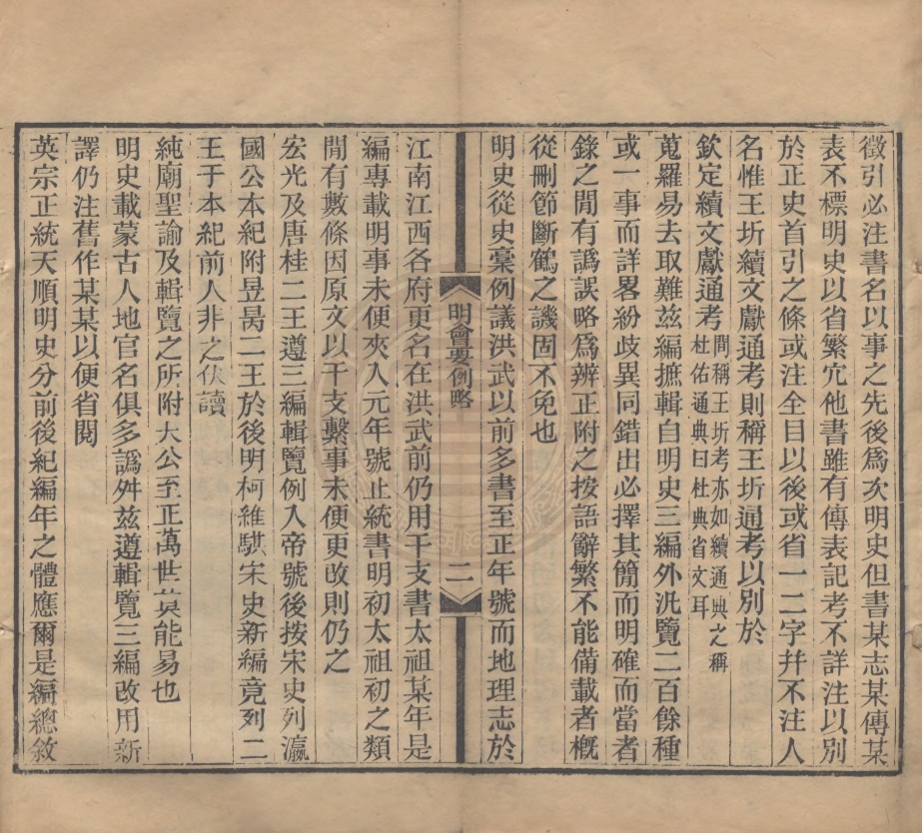 徵引必注書名以事之先後爲次明史但書某志某傳某
表不標明史以省繁宂他書雖有傳表記考不詳注以別
於正史首引之條或注全目以後或省一二字幷不注人
名惟王圻續文獻通考則稱王圻通考以別於
欽定續文獻通考間稱王圻考亦如續通典之稱杜佑通典曰杜典省文耳
蒐羅易去取難茲編摭輯自明史三編外汎覽二百餘種
或一事而詳畧紛歧異同錯出必擇其簡而明確而當者
錄之間有譌誤略爲辨正附之按語辭繁不能備載者槪
從刪節斷鶴之譏固不免也
明史從史稾例議洪武以前多書至正年號而地理志於
明會要例略
二
江南江西各府更名在洪武前仍用干支書太祖某年是
編專載明事未便夾入元年號止統書明初太祖初之類
閒有數條因原文以干支繫事未便更改則仍之
宏光及唐桂二王遵三編輯覽例入帝號後按宋史列瀛
國公本紀附昱昺二王於後明柯維騏宋史新編竟列二
王于本紀前人非之伏讀
純廟聖諭及輯覽之所附大公至正萬世莫能易也
明史載蒙古人地官名俱多譌舛茲遵輯覽三編改用新
譯仍注舊作某某以便省閱
英宗正統天順明史分前後紀編年之體應爾是編總敘